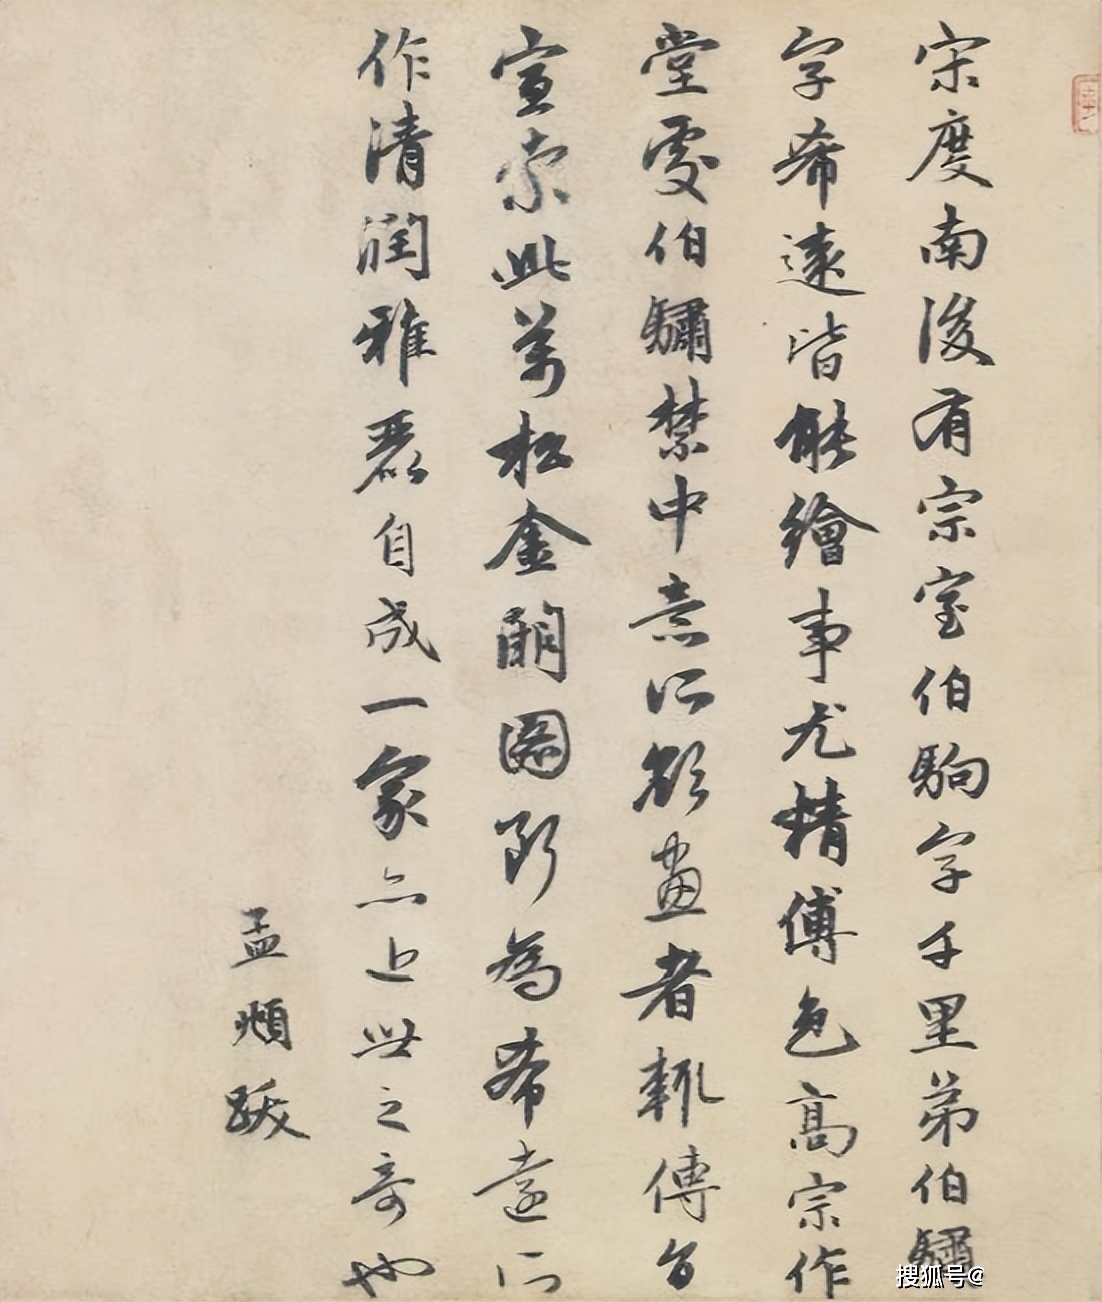 宋度南後有宗室伯駒字千里弟伯驌
字希遠皆能繪事尤精傅色高宗作
堂處伯驌禁中意所欲畫者輒傳旨
宣索此萬松金闕圖斷為希遠所
作清潤雅麗自成一家亦近世之奇也
孟頫跋
搜狐号@